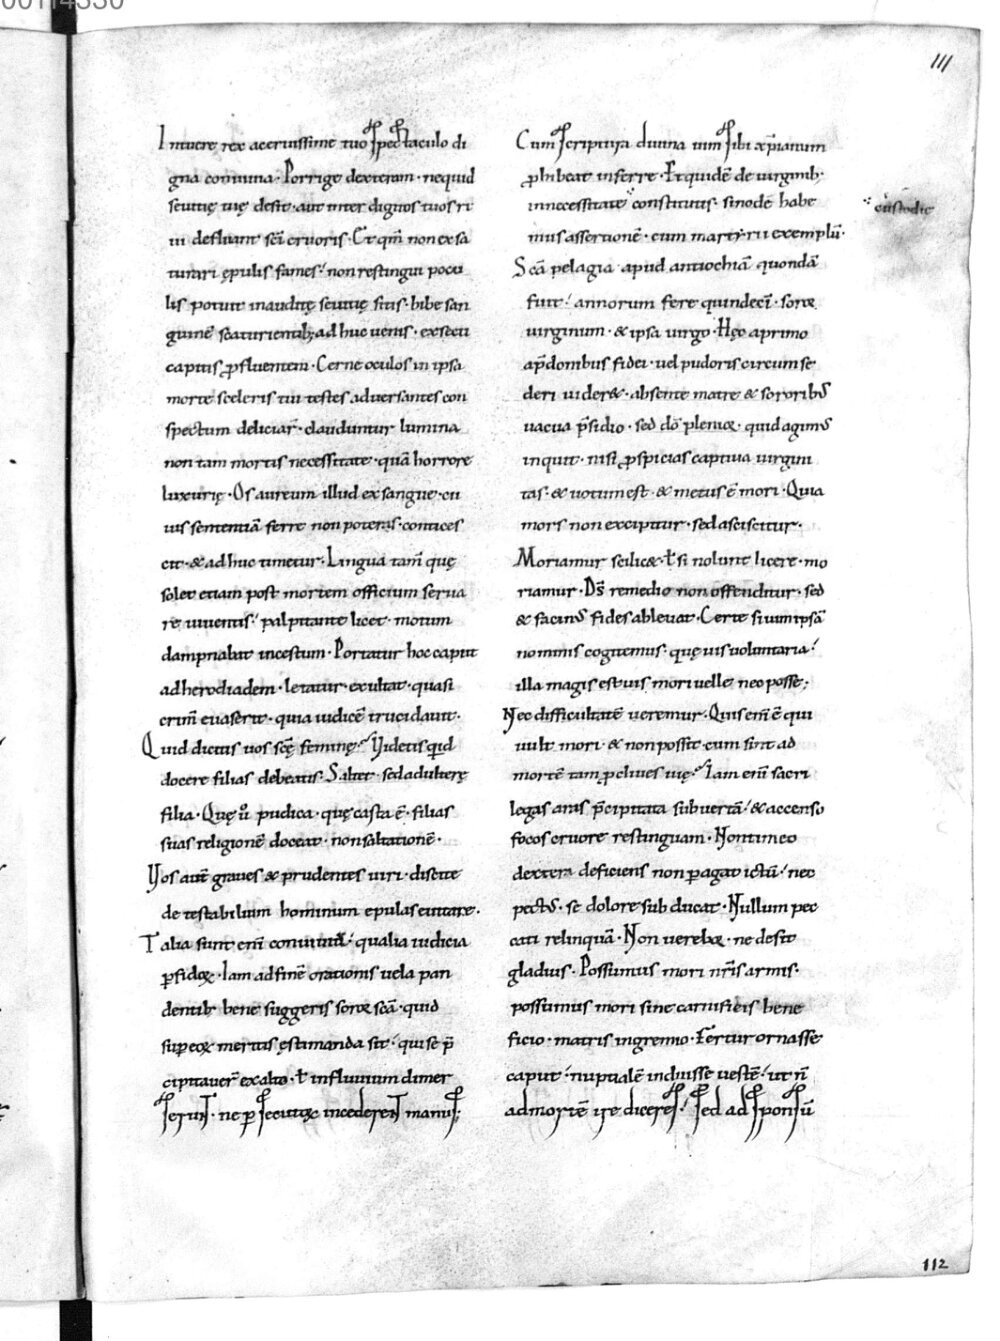 00114330
111
Intuere rex acervissime tuo spectaculo di
gna conuiuia· Porrige dexteram· nequid
seuitię tuę desit· aut inter digitos tuos ri
ui defluant sc̄i cruoris· Et qm̄ non exsa
turari ępulis fames· non restingui pocu
lis potuit inauditę seuitię sitis· bibe san
guinē scaturientib; adhuc uenis· exsecti
capitis ꝓfluentem· Cerne oculos in ipsa
morte sceleris tui testes aduersantes con
spectum deliciar̄· clauduntur lumina
non tam mortis necessitate· quā horrore
luxurię· Os aureum illud exsangue· cu
ius sententiā ferre non poteras· contices
cit· & adhuc timetur· Lingua tam̄ quę
solet etiam post mortem officium serua
re uiuentis· palpitante licet· motum
dampnabat incestum· Portatur hoc caput
ad herodiadem· letatur· exultat· quasi
crim̄ euaserit· quia iudicē trucidauit·
Quid dicitis uos sc̄ę feminę? Videtis qͥd
docere filias debeatis· Saltet· sed adulterę
filia· Quę u̇ pudica· quę casta ē· filias
suas religionē doceat· non saltationē·
Vos aut̄ graues & prudentes uiri· discite
detestabilium hominum epulas euitare·
Talia sunt eni̅ conuiuia· qualia iudicia
ꝑfidoꝝ· Iam ad finē orationis uela pan
dentib; bene suggeris soror sc̄ā· quid
suꝑ eoꝝ meritis ęstimanda sit· qui se p̄
cipitauer̄ ex alto· ł in fluuium dimer
serunt· ne ꝑsecutoꝝ incederent manus;
Cum scriptura diuina uim sibi xp̄ianum
ꝓhibeat inferre· Et quidē de uirginib;
in necessitate constitutis· sinodē habe
custodie
mus assertionē· cum martyrii exemplū·
Scā pelagia apud antiochiā quondā
fuit· annorum fere quindeci̅· soror
uirginum· & ipsa uirgo· Hęc a primo
ap̄donibus fidei· uel pudoris circumse
deri uider&· absente matre & sororibꝰ
uacua p̄sidio· sed dō plenior· quid agimꝰ
inquit· nisi ꝓspicias captiua uirgini
tas· & uotum est· & metus ē mori· Quia
mors non excipitur· sed asciscitur·
Moriamur si lic&· ł si nolunt licere· mo
riamur· Ds̄ remedio non offenditur· sed
& facinꝰ fides ableuat· Certe si uim ipsā
nominis cogitemus· quę uis uoluntaria·
illa magis est uis mori uelle nec posse;
Nec difficultatē ueremur· Quis eni̅ ē qui
uult mori· & non possit· cum sint ad
mortē tam ꝓcliues uię? Iam eni̅ sacri
legas aras p̄cipitata subuertā· & accenso
focos cruore restinguam· Non timeo
dextera deficiens non ꝑagat ictū· nec
pectꝰ· se dolore subducat· Nullum pec
cati relinquā· Non uerebor· ne desit
gladius· Possumus mori nr̄is armis·
possumus mori sine carnificis bene
ficio· matris in gremio· Fertur ornasse
caput· nuptialē induisse uestē· ut n̄
ad mortē ire diceres· sed ad sponsū
112